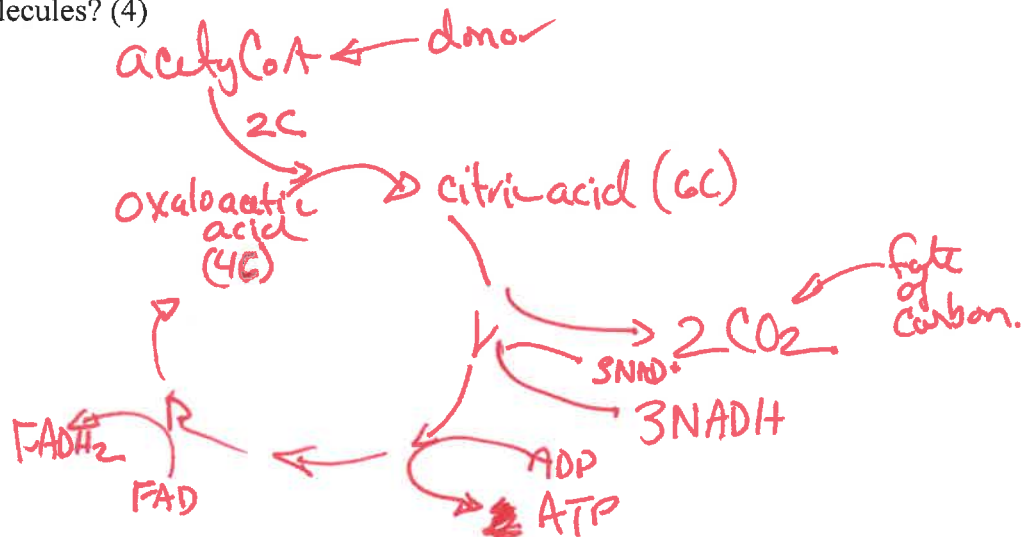 lecules? (4)
acetyCoA
donor
2C
oxaloacetic
acid
(4C)
citric acid (6C)
fate
of
carbon.
2 CO2
3NAD+
3NADH
ADP
ATP
FADH2
FAD